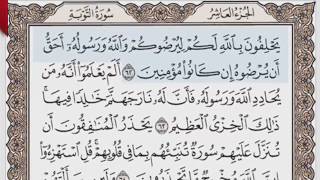 الجزء العاشر
سورة التوبة
يَحْلِفُونَ بِاللَّهِ لَكُمْ لِيُرْضُوكُمْ وَاللَّهُ وَرَسُولُهُ أَحَقُّ
أَن يُرْضُوهُ إِن كَانُوا مُؤْمِنِينَ ٦٢ أَلَمْ يَعْلَمُوا أَنَّهُ مَن
يُحَادِدِ اللَّهَ وَرَسُولَهُ فَأَنَّ لَهُ نَارَ جَهَنَّمَ خَالِدًا فِيهَا
ذَٰلِكَ الْخِزْيُ الْعَظِيمُ ٦٣ يَحْذَرُ الْمُنَافِقُونَ أَن
تُنَزَّلَ عَلَيْهِمْ سُورَةٌ تُنَبِّئُهُم بِمَا فِي قُلُوبِهِمْ قُلِ اسْتَهْزِءُوا